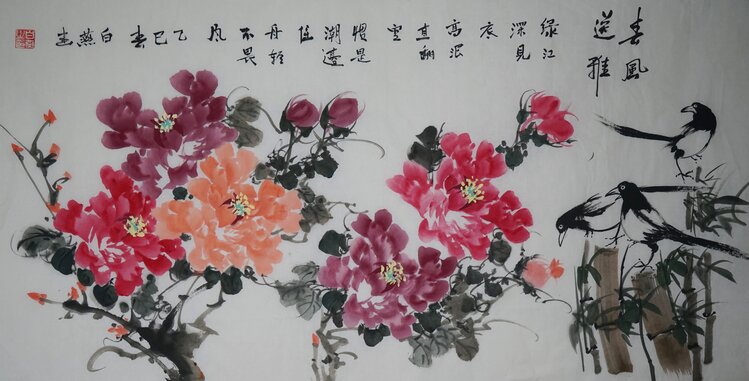 春風
送雅
绿江
深見
底
高浪
直翻
空
惯是
湖邊
住
舟轻
不畏
风
乙
巳
春
白
燕